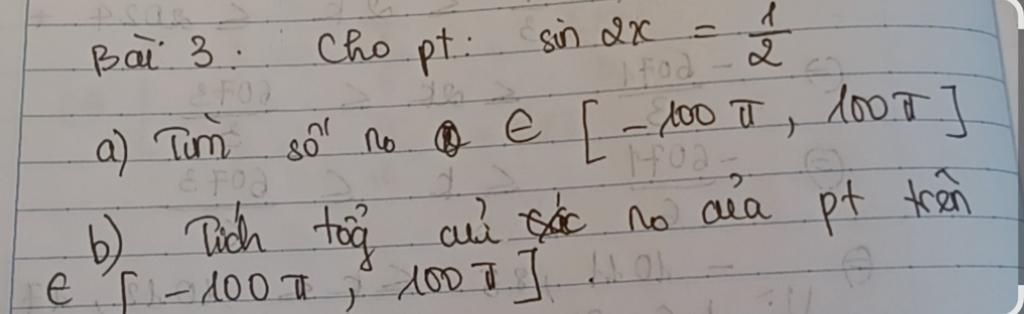 Bài 3: Cho pt: sin 2x = 1/2
a) Tìm số no ∈ [-100π, 100π]
b) Tích tổg các no của pt trên
∈ [-100π, 100π].